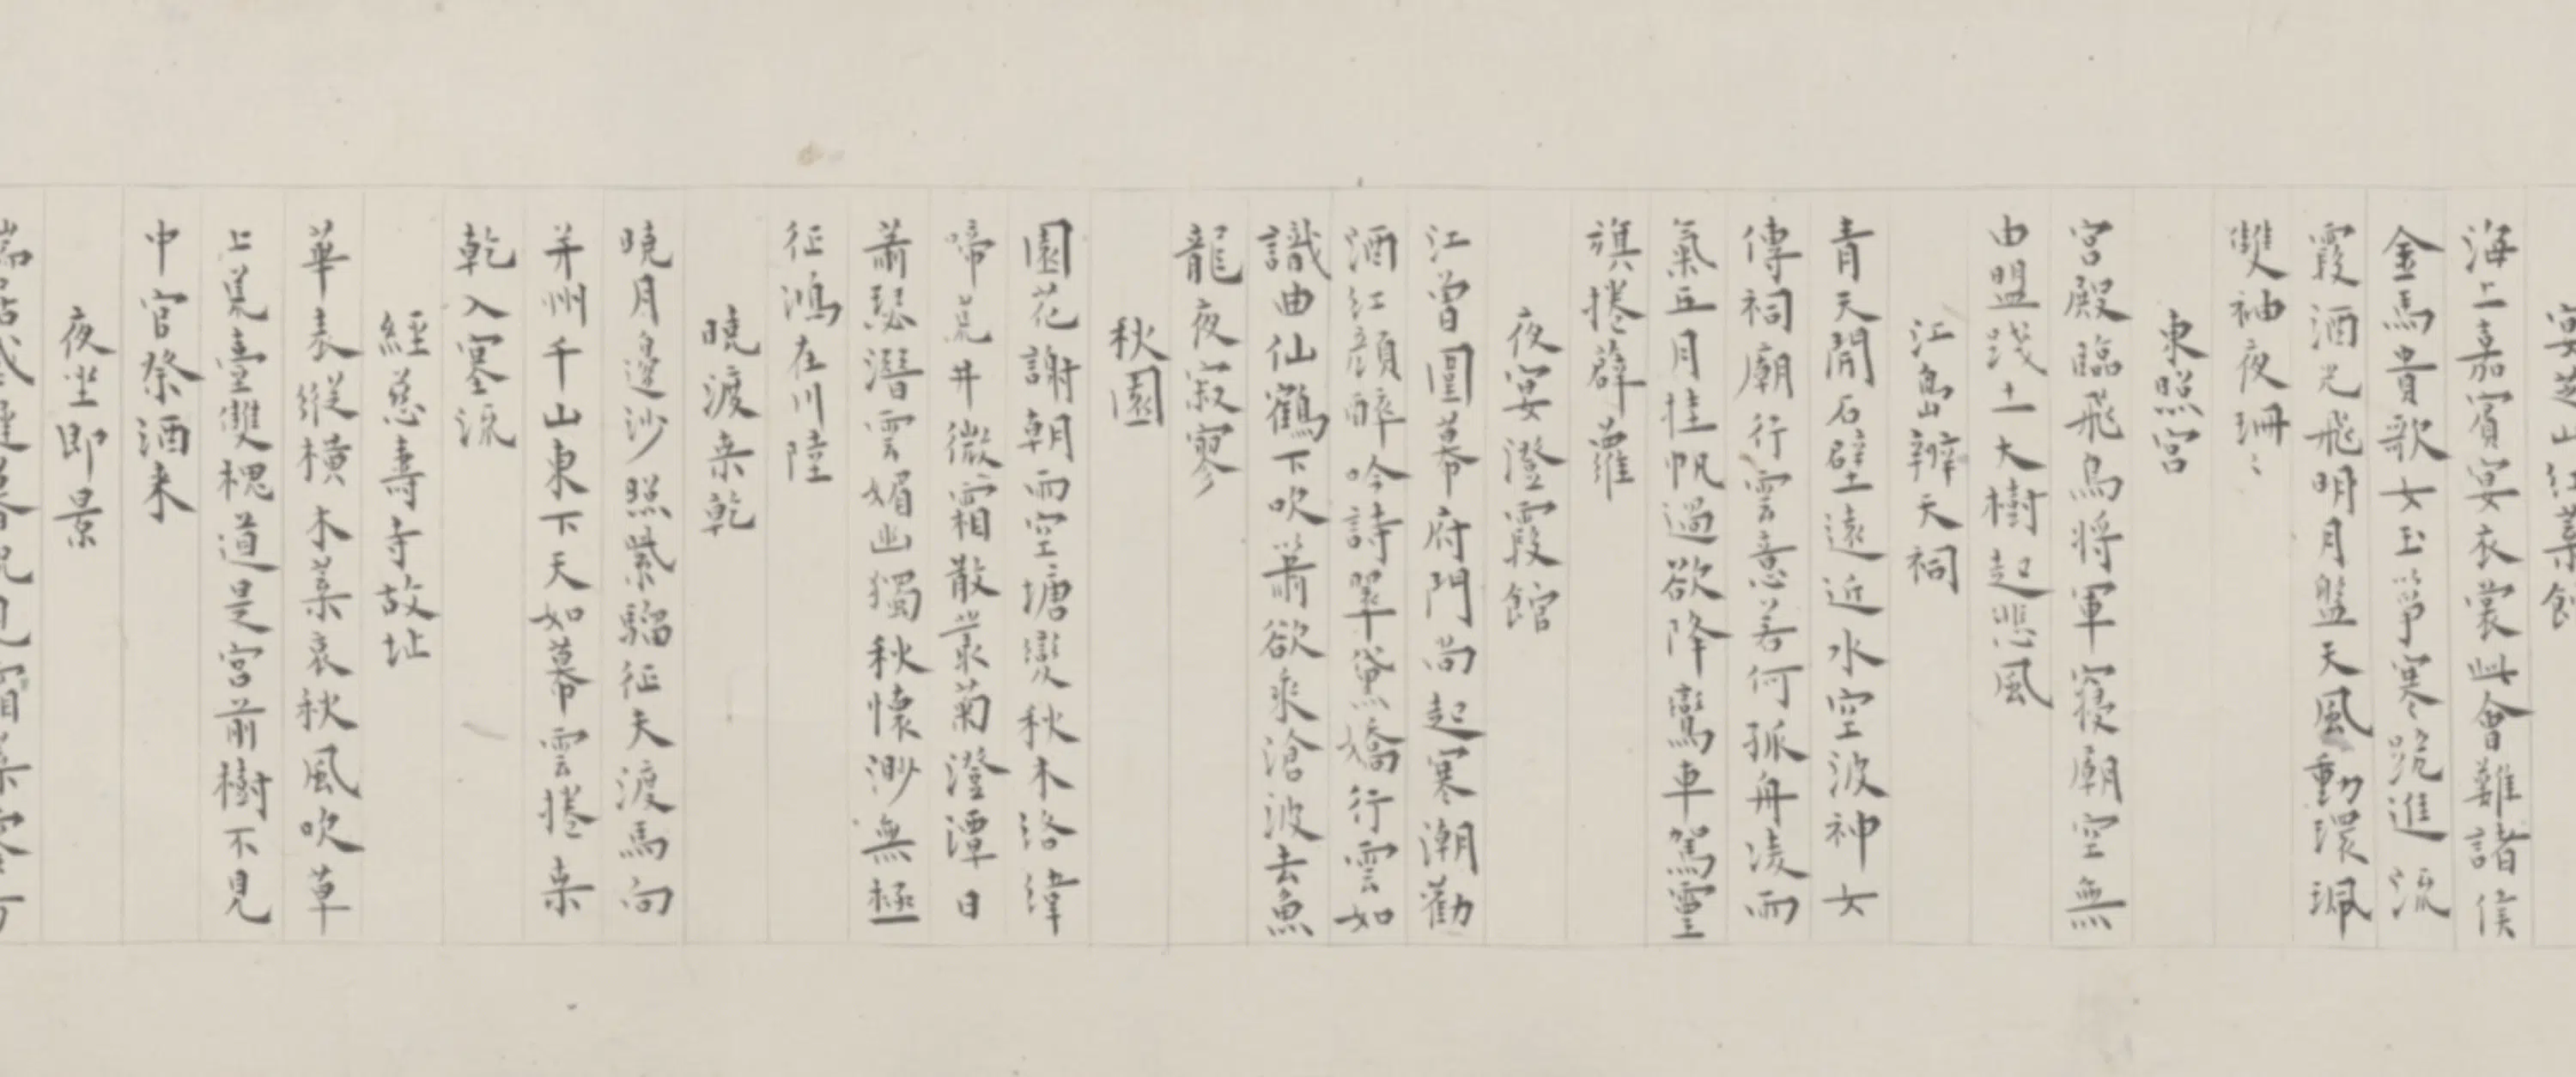 宴芝山紅葉館
海上嘉賓宴衣裳此會難諸侯
金馬貴歌女玉箏寒跪進流
霞酒光飛明月盤天風動環珮
雙袖夜珊〻
東照宮
宮殿臨飛鳥將軍寢廟空無
由盟踐土大樹起悲風
江島辨天祠
青天開石壁遠近水空波神女
傳祠廟行雲意若何孤舟凌雨
氣五月挂帆過欲降鸞車駕靈
旗捲薜蘿
夜宴澄霞館
江曾圍幕府門尚起寒潮勸
酒紅顏醉吟詩翠黛嬌行雲如
識曲仙鶴下吹簫欲乘滄波去魚
龍夜寂寥
秋園
園花謝朝雨空塘變秋木絡緯
啼荒井微霜散叢菊澄潭日
蕭瑟潛雲媚幽獨秋懷渺無極
征鴻在川陸
曉渡桒乾
曉月邊沙照紫騮征夫渡馬向
并州千山東下天如幕雲捲桒
乾入塞流
經慈壽寺故址
華表縱橫木葉哀秋風吹草
上荒臺雙槐道是宮前樹不見
中官祭酒来
夜坐即景